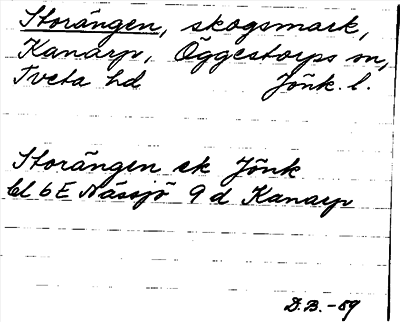 Storängen, skogsmark,
Kanarp, Öggestorps sn,
Tveta hd Jönk. l.
Storängen ek Jönk
bl 6 E Nässjö 9 d Kanarp
D.B. -89